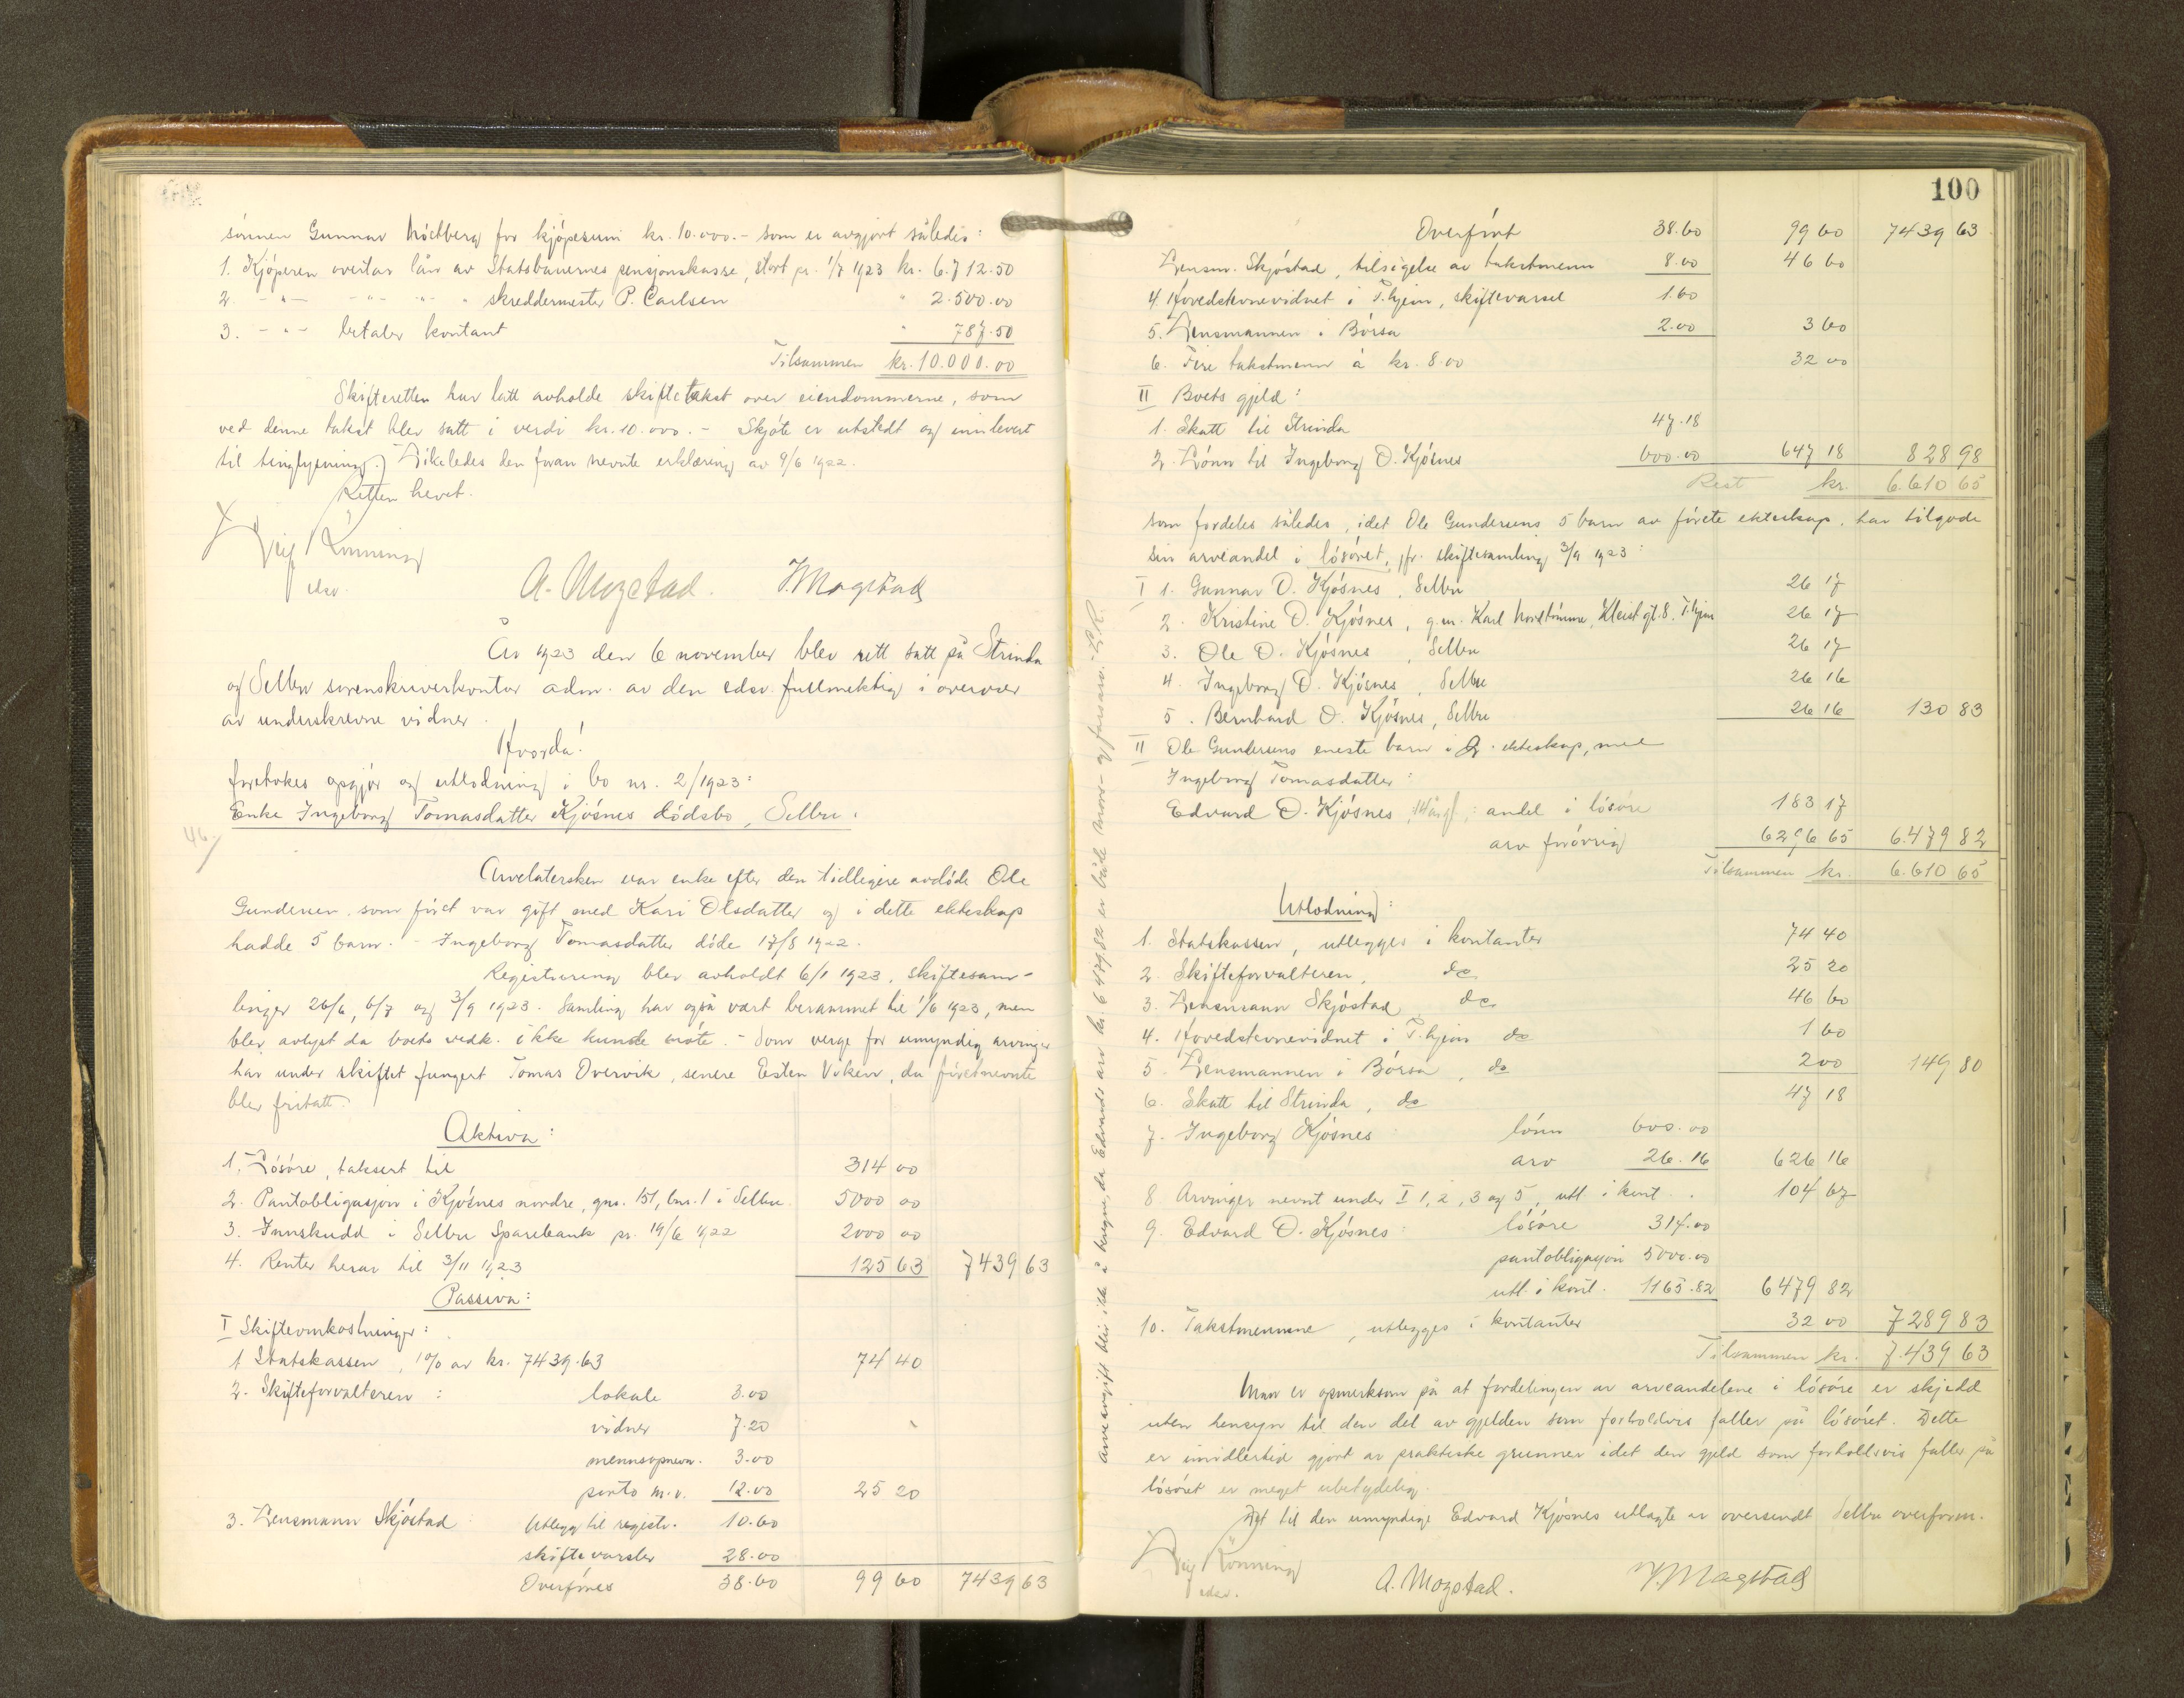 sønnen Gunnar for kjøpesum kr. 10.000.- som er avgjort således:
1. Kjøperen overtar lån av Statsbanernes pensjonskasse, stort pr. 1/7 1923 kr. 6.712.50
2. -"- -"- -"- " skreddermester P. Carlsen " 2.500.00
3. -"- betaler kontant " 787.50
Tilsammen kr. 10.000.00
Skifteretten har latt avholde skiftetakst over eiendommerne, som
ved denne takst blev satt i verdi kr. 10.000.- Skjøte er utstedt og innlevert
til tinglysning. Likeledes den foran nevnte erklæring av 9/6 1922.
Retten hevet.
Rönning
edsv.
A. Mogstad. Mogstad
År 1923 den 6 november blev rett satt på Strinda
og Selbu sorenskriverkontor adm. av den edsv. fullmektig i overvær
av underskrevne vidner.
Hvorda!
foretokes opgjør og utlodning i bo nr. 2/1923:
Enke Ingeborg Tomasdatter Kjøsnes dødsbo, Selbu.
46.
Arvelatersken var enke efter den tidligere avdøde Ole
Gundersen som først var gift med Kari Olsdatter og i dette ekteskap
hadde 5 barn. - Ingeborg Tomasdatter døde 17/8 1922.
Registrering blev avholdt 6/1 1923, skiftesam-
linger 26/6, 6/7 og 3/9 1923. Samling har også vært berammet til 1/6 1923, men
blev avlyst da boets vedk. ikke kunde møte. - Som verge for umyndig arvinger
har under skiftet fungert Tomas Overvik, senere Esten Viken, da førstnevnte
blev fritatt.
Aktiva:
1. Løsøre, taksert til 314 00
2. Pantobligasjon i Kjøsnes nordre, gnr. 151, bnr. 1 i Selbu. 5000 00
3. Innskudd i Selbu Sparebank pr. 19/6 1922 2000 00
4. Renter herav til 3/11 1923 125 63 7439 63
Passiva:
I Skifteomkostninger:
1 Statskassen, 1% av kr. 7439.63 74 40
2. Skifteforvalteren: lokale 3.00
vidner 7.20
mennsopnevn. 3.00
porto m.v. 12.00 25 20
3. Lensmann Skjøstad utlegg til registr. 10.60
skiftevarsler 28.00
Overføres 38.60 99 60 7439 63
100
Overført 38.60 99 60 7439 63
Lensm. Skjøstad, tilsigelse av takstmenn 8.00 46 60
4. Hovedstevnevidnet i T.hjem, skiftevarsel 1.60
5. Lensmannen i Børsa 2.00 3 60
6. Fire takstmenn á kr. 8.00 32 00
II Boets gjeld:
1. Skatt til Strinda 47.18
2. Lønn til Ingeborg O. Kjøsnes 600.00 647 18 828 98
Rest kr. 6.610 65
som fordeles således, idet Ole Gundersens 5 barn av første ekteskap, har tilgode
sin arveandel i løsøret, jfr. skiftesamling 3/9 1923:
I 1. Gunnar O. Kjøsnes, Selbu 26 17
2. Kristine O. Kjøsnes, g.m. Karl Nordtømme, Kleist gt. 8. T.hjem 26 17
3. Ole O. Kjøsnes, Selbu 26 17
4. Ingeborg O. Kjøsnes, Selbu 26 16
5. Bernhard O. Kjøsnes, Selbu 26 16 130 83
II Ole Gundersens eneste barn i 2. ekteskap, med
Ingeborg Tomasdatter:
Edvard O. Kjøsnes, andel i løsøre 183 17
arv forøvrig 6296 65 6.479 82
Tilsammen kr. 6.610 65
Utlodning:
1. Statskassen, utlegges i kontanter 74 40
2. Skifteforvalteren, do 25 20
3. Lensmann Skjøstad, do 46 60
4. Hovedstevnevidnet i T.hjem do 1 60
5. Lensmannen i Børsa, do 2 00 149 80
6. Skatt til Strinda, do 47 18
7. Ingeborg Kjøsnes lønn 600.00
arv 26.16 626 16
8. Arvinger nevnt under I 1, 2, 3 og 5, utl. i kont. . 104 67
9. Edvard O. Kjøsnes: løsøre 314.00
pantobligasjon 5000.00
utl. i kont. 1165.82 6479 82
10. Takstmennene, utlegges i kontanter 32 00 7289 83
Tilsammen kr. 7.439 63
Man er opmerksom på at fordelingen av arveandelene i løsøre er skjedd
uten hensyn til den del av gjelden som forholdsvis faller på løsøret. Dette
er imidlertid gjort av praktiske grunner idet den gjeld som forholdsvis faller på
løsøret er meget ubetydelig.
Det til den umyndige Edvard Kjøsnes utlagte er oversendt Selbu overform.
Rönning
edsv.
A. Mogstad. Mogstad
Arveavgift blir ikke å beregne, da Edvards arv kr. 6479,82 er både mors- og farsarv. L.R.